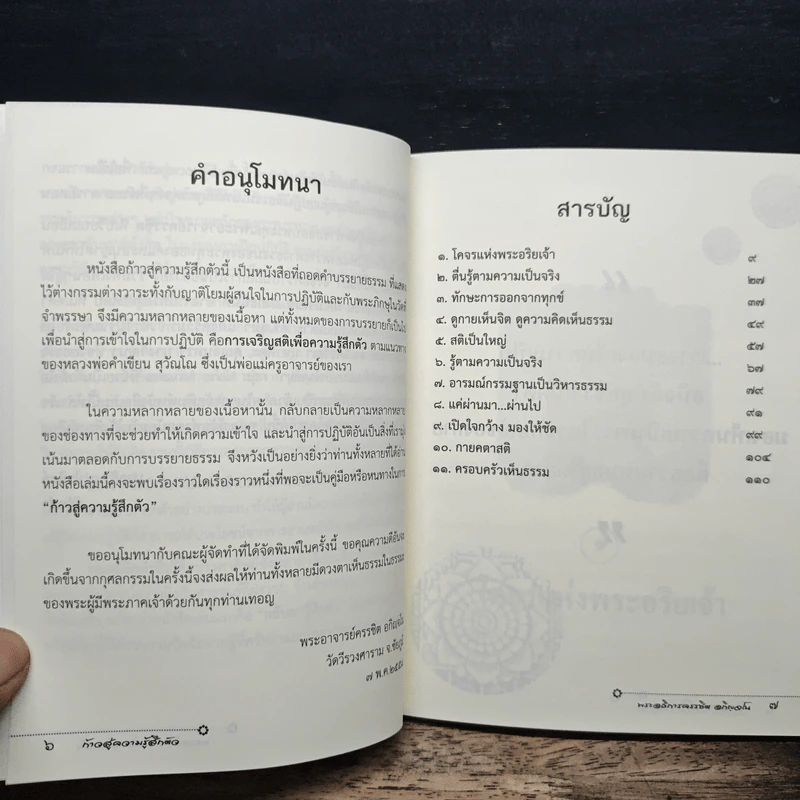 คำอนุโมทนา
หนังสือก้าวสู่ความรู้สึกตัวนี้ เป็นหนังสือที่ถอดคำบรรยายธรรม ที่แสดง
ไว้ต่างกรรมต่างวาระทั้งกับญาติโยมผู้สนใจในการปฏิบัติและกับพระภิกษุในวัดที่
จำพรรษา จึงมีความหลากหลายของเนื้อหา แต่ทั้งหมดของการบรรยายก็เป็นไป
เพื่อนำสู่การเข้าใจในการปฏิบัติ คือการเจริญสติเพื่อความรู้สึกตัว ตามแนวทาง
ของหลวงพ่อคำเขียน สุวัณโณ ซึ่งเป็นพ่อแม่ครูอาจารย์ของเรา
ในความหลากหลายของเนื้อหานั้น กลับกลายเป็นความหลากหลาย
ของช่องทางที่จะช่วยทำให้เกิดความเข้าใจ และนำสู่การปฏิบัติอันเป็นสิ่งที่เรามุ่ง
เน้นมาตลอดกับการบรรยายธรรม จึงหวังเป็นอย่างยิ่งว่าท่านทั้งหลายที่ได้อ่าน
หนังสือเล่มนี้คงจะพบเรื่องราวใดเรื่องราวหนึ่งที่พอจะเป็นคู่มือหรือหนทางในการ
“ก้าวสู่ความรู้สึกตัว”
ขออนุโมทนากับคณะผู้จัดทำที่ได้จัดพิมพ์ในครั้งนี้ ขอคุณความดีอันจะ
เกิดขึ้นจากกุศลกรรมในครั้งนี้จงส่งผลให้ท่านทั้งหลายมีดวงตาเห็นธรรมในธรรม
ของพระผู้มีพระภาคเจ้าด้วยกันทุกท่านเทอญ
พระอาจารย์ครรชิต อกิญฺจโน
วัดวีรวงศาราม จ.ชัยภูมิ
๗ พ.ค.๒๕๕๘
๖ ก้าวสู่ความรู้สึกตัว
สารบัญ
๑. โคจรแห่งพระอริยเจ้า ๙
๒. ตื่นรู้ตามความเป็นจริง ๒๗
๓. ทักษะการออกจากทุกข์ ๓๗
๔. ดูกายเห็นจิต ดูความคิดเห็นธรรม ๔๙
๕. สติเป็นใหญ่ ๕๗
๖. รู้ตามความเป็นจริง ๖๗
๗. อารมณ์กรรมฐานเป็นวิหารธรรม ๗๙
๘. แค่ผ่านมา...ผ่านไป ๙๑
๙. เปิดใจกว้าง มองให้ชัด ๙๙
๑๐. กายคตาสติ ๑๐๔
๑๑. ครอบครัวเห็นธรรม ๑๑๐
พระอธิการครรชิต อกิญฺจโน ๗